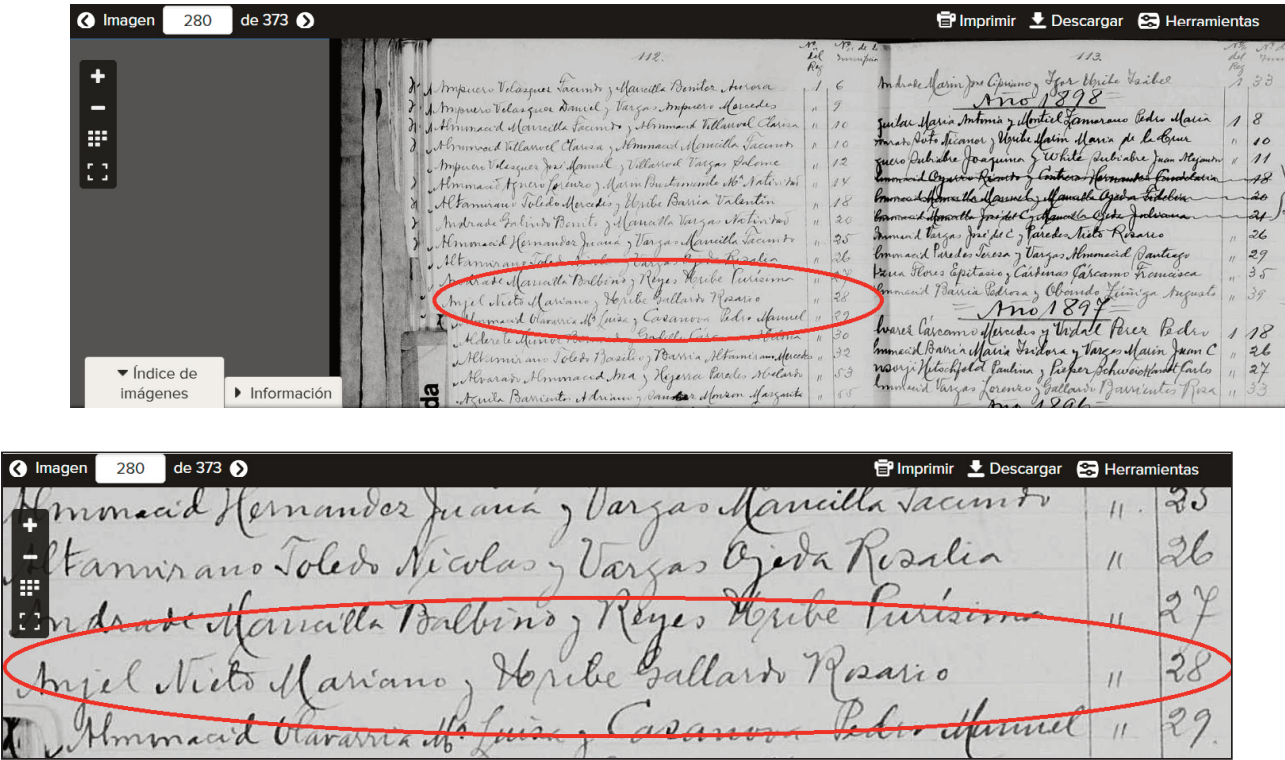 Imagen 280 de 373
Imprimir Descargar Herramientas
112.
Nº del Reg
Nº de la
Ampuero Velasquez Facundo y Mancilla Benitez Aurora 1 6
Ampuero Velasquez Daniel y Vargas Ampuero Mercedes " 9
Almonacid Mancilla Facundo y Almonacid Villarroel Clarisa " 10
Almonacid Villarroel Clarisa y Almonacid Mancilla Facundo " 10
Ampuero Velasquez José Manuel y Villarroel Vargas Salome " 12
Almonacid Aguero Lorenzo y Marin Bustamante Mª Natividad " 14
Altamirano Toledo Mercedes y Uribe Barria Valentin " 18
Andrade Galindo Benito y Mancilla Vargas Natividad " 20
Almonacid Hernandez Juana y Vargas Mancilla Facundo " 25
Altamirano Toledo Nicolas y Vargas Ojeda Rosalia " 26
Andrade Mancilla Balbino y Reyes Uribe Purísima " 27
Anjel Nieto Mariano y Uribe Gallardo Rosario " 28
Almonacid Olavarria Mª Luisa y Casanova Pedro Manuel " 29
Alderete Muñoz " 30
Altamirano Toledo Basilio y Barria Altamirano Mercedes " 32
Alvarado Almonacid Ana y Higerra Paredes Abelardo " 53
Aguila Barrientos Adriano y Monzon Margarita " 55
113.
Nº del Reg
Andrade Marin José Cipriano y Uribe Isabel 1 33
Año 1898
Maria Antonia y Montiel Zamorano Pedro Maria 1 8
Soto Nicanor y Uribe Marin Maria de la Cruz " 10
Subiabre Joaquina y White Subiabre Juan Alejandro " 11
Oyarzo y Contreras Hernandez Candelaria 18
Mancilla Manuel y Mancilla Ojeda Fidelia 20
Mancilla José del C y Mancilla Ojeda 21
Vargas José del C y Paredes Nieto Rosario " 26
Paredes Teresa y Vargas Almonacid Santiago " 29
Flores Epitasio y Cárdenas Cárcamo Francisca " 35
Barria Pedrosa y Obando Zúñiga Augusto " 39
Año 1897
Cárcamo Mercedes y Vidal Perez Pedro 1 18
Barria Maria Isidora y Vargas Marin Juan C " 26
Paulina y Carlos " 27
Vargas Lorenzo y Gallardo Barrientos Rosa " 33
Año 1896
Índice de imágenes
Información
Imagen 280 de 373
Imprimir Descargar Herramientas
Almonacid Hernandez Juana y Vargas Mancilla Facundo " 25
Altamirano Toledo Nicolas y Vargas Ojeda Rosalia " 26
Andrade Mancilla Balbino y Reyes Uribe Purísima " 27
Anjel Nieto Mariano y Uribe Gallardo Rosario " 28
Almonacid Olavarria Mª Luisa y Casanova Pedro Manuel " 29.